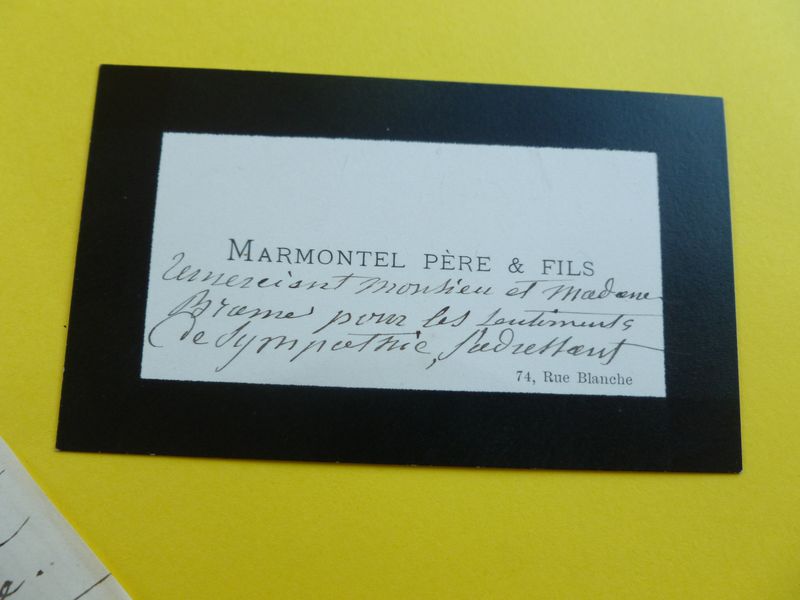 MARMONTEL PÈRE & FILS
remerciant Monsieu et Madame
Brame pour les sentiments
de sympathie, s'adressant
74, Rue Blanche